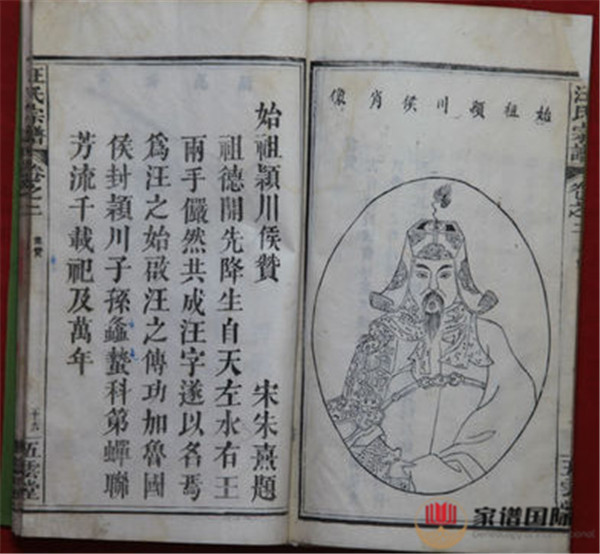 始祖潁川侯肖像
始祖潁川侯贊
宋朱熹題
祖德開先降生自天左水右王
兩手儼然共成汪字遂以名焉
為汪之始啟汪之傳功加魯國
侯封潁川子孫螽蟄科第蟬聯
芳流千載祀及萬年
汪氏宗譜
卷之二
像贊
十六
五雲堂
汪氏宗譜
卷之二
五雲堂
家谱国际